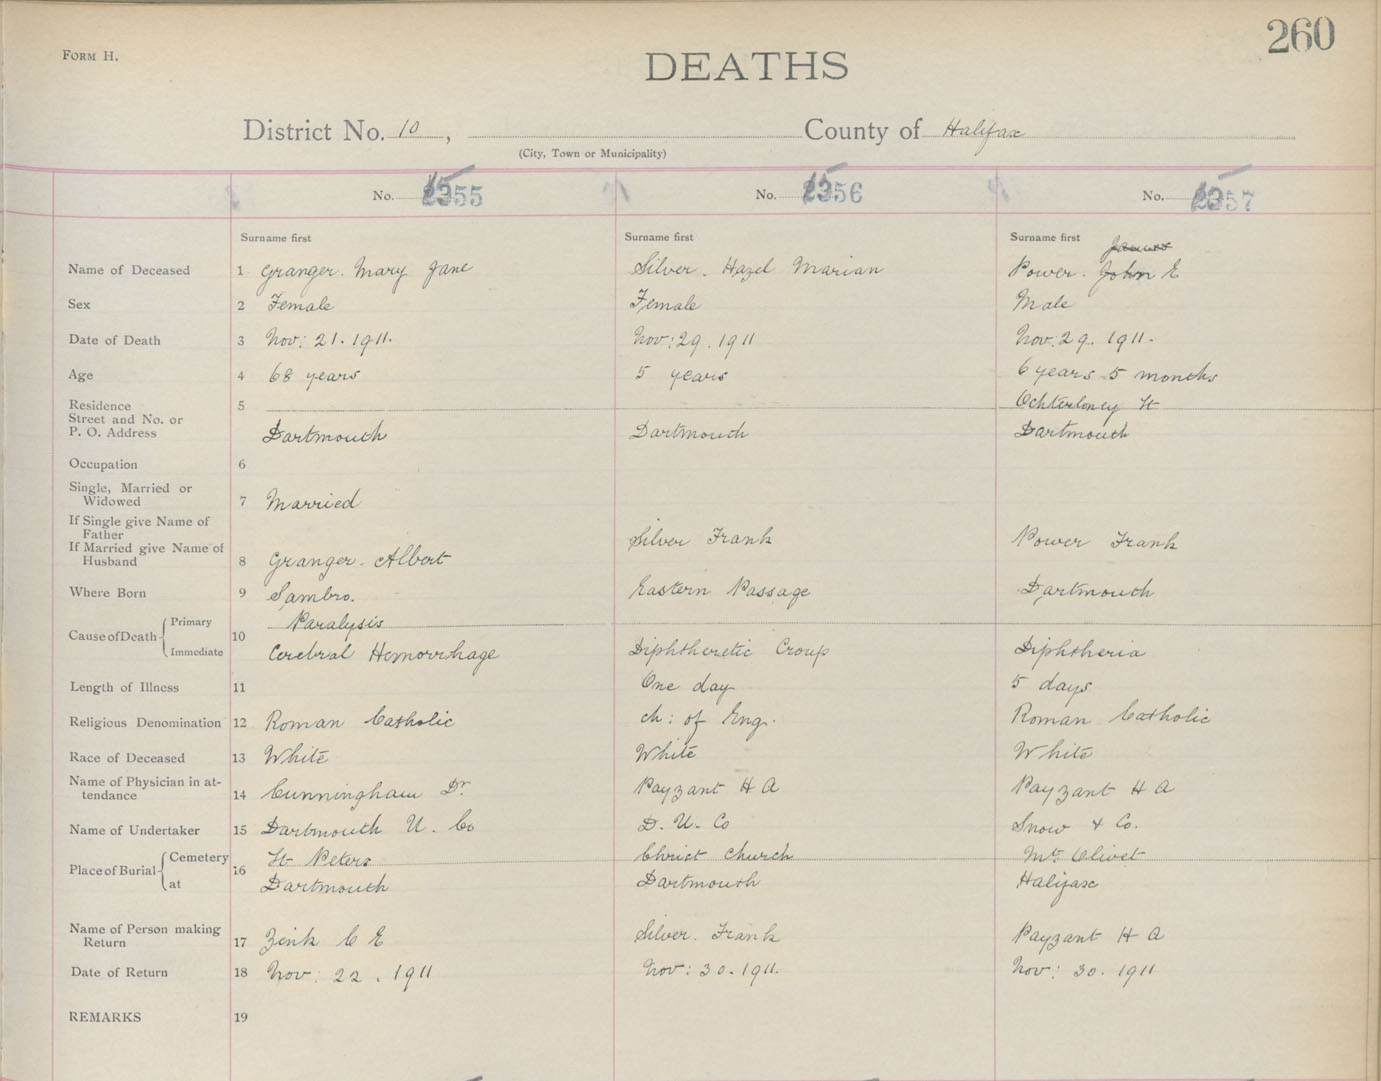 260
FORM H.
DEATHS
District No. 10, County of Halifax
(City, Town or Municipality)
No. 2355 No. 2356 No. 2357
Surname first Surname first Surname first
Name of Deceased 1 Granger. Mary Jane Silver. Hazel Marian Power. John E
Sex 2 Female Female Male
Date of Death 3 Nov: 21. 1911. Nov: 29. 1911 Nov. 29. 1911.
Age 4 68 years 5 years 6 years 5 months
Residence 5 Ochterloney St
Street and No. or
P. O. Address Dartmouth Dartmouth Dartmouth
Occupation 6
Single, Married or
Widowed 7 Married
If Single give Name of
Father Silver Frank Power Frank
If Married give Name of
Husband 8 Granger. Albert
Where Born 9 Sambro. Eastern Passage Dartmouth
Primary Paralysis
Cause of Death 10
Immediate Cerebral Hemorrhage Diphtheretic Croup Diphtheria
Length of Illness 11 One day 5 days
Religious Denomination 12 Roman Catholic ch: of Eng. Roman Catholic
Race of Deceased 13 White White White
Name of Physician in at-
tendance 14 Cunningham Dr. Payzant H A Payzant H A
Name of Undertaker 15 Dartmouth U. Co D. U. Co Snow & Co.
Cemetery St Peters Christ Church Mt. Olivet
Place of Burial 16
at Dartmouth Dartmouth Halifax
Name of Person making
Return 17 Zink C E Silver. Frank Payzant H A
Date of Return 18 Nov: 22. 1911 Nov: 30. 1911. Nov: 30. 1911
REMARKS 19